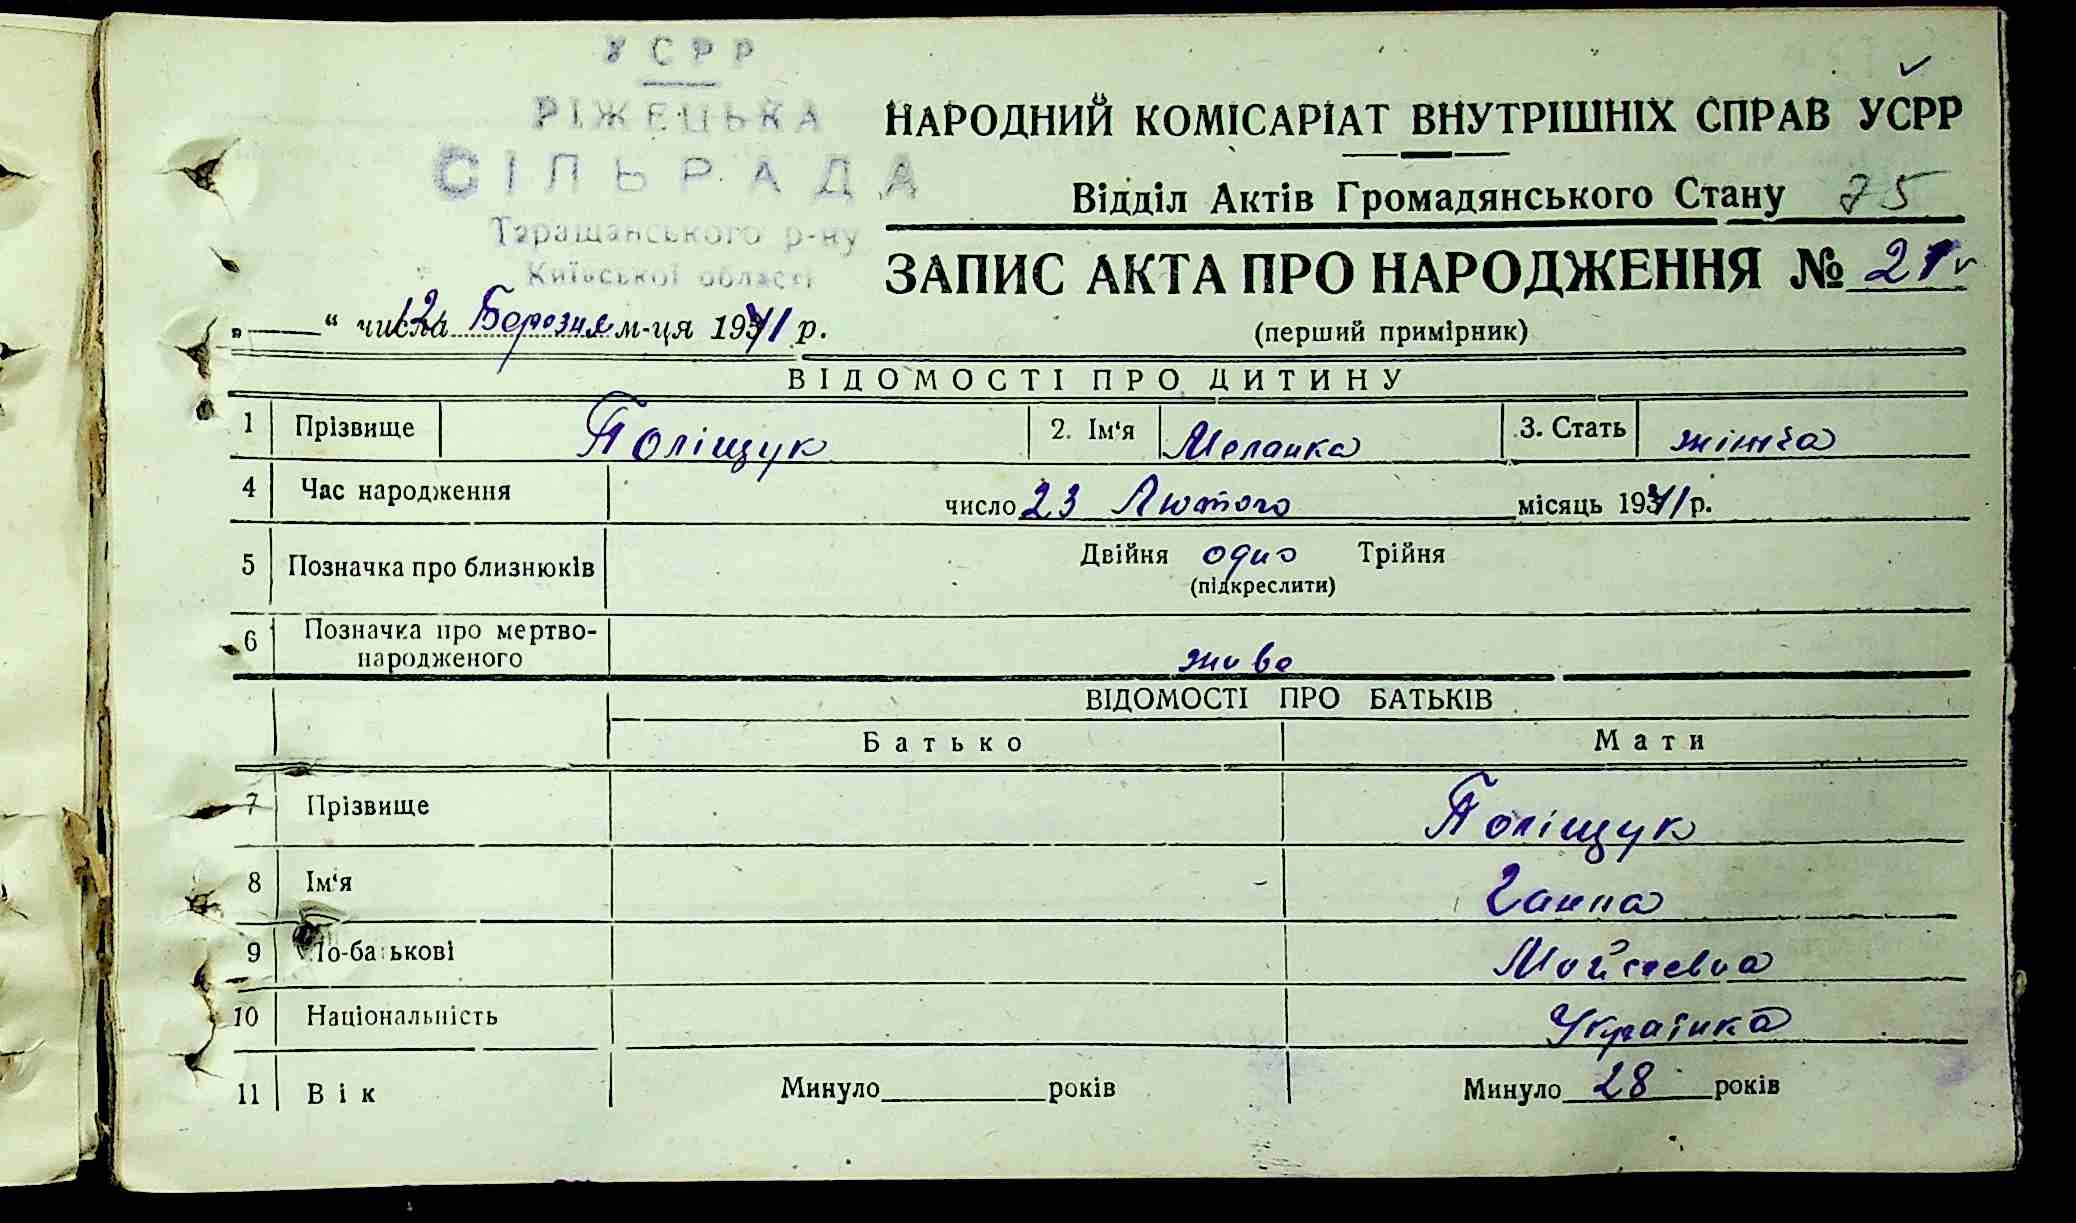 УСРР
РІЖЕЦЬКА
СІЛЬРАДА
Таращанського р-ну
Київської області
НАРОДНИЙ КОМІСАРІАТ ВНУТРІШНІХ СПРАВ УСРР
Відділ Актів Громадянського Стану 75
ЗАПИС АКТА ПРО НАРОДЖЕННЯ № 21
(перший примірник)
„ “ числа 12 Березня м-ця 1941 р.
ВІДОМОСТІ ПРО ДИТИНУ
1 Прізвище Поліщук 2. Ім‘я Меланка 3. Стать жіноча
4 Час народження число 23 Лютого місяць 1941 р.
5 Позначка про близнюків Двійня одно Трійня
(підкреслити)
6 Позначка про мертво-
народженого живе
ВІДОМОСТІ ПРО БАТЬКІВ
Батько Мати
7 Прізвище Поліщук
8 Ім‘я Ганна
9 По-батькові Мойсеевна
10 Національність Українка
11 Вік Минуло років Минуло 28 років